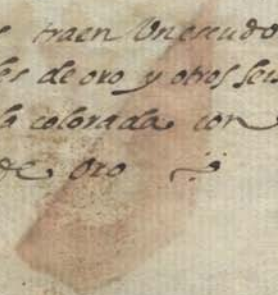 traen Un escudo
les de oro y otros seis
la colorada con
de oro